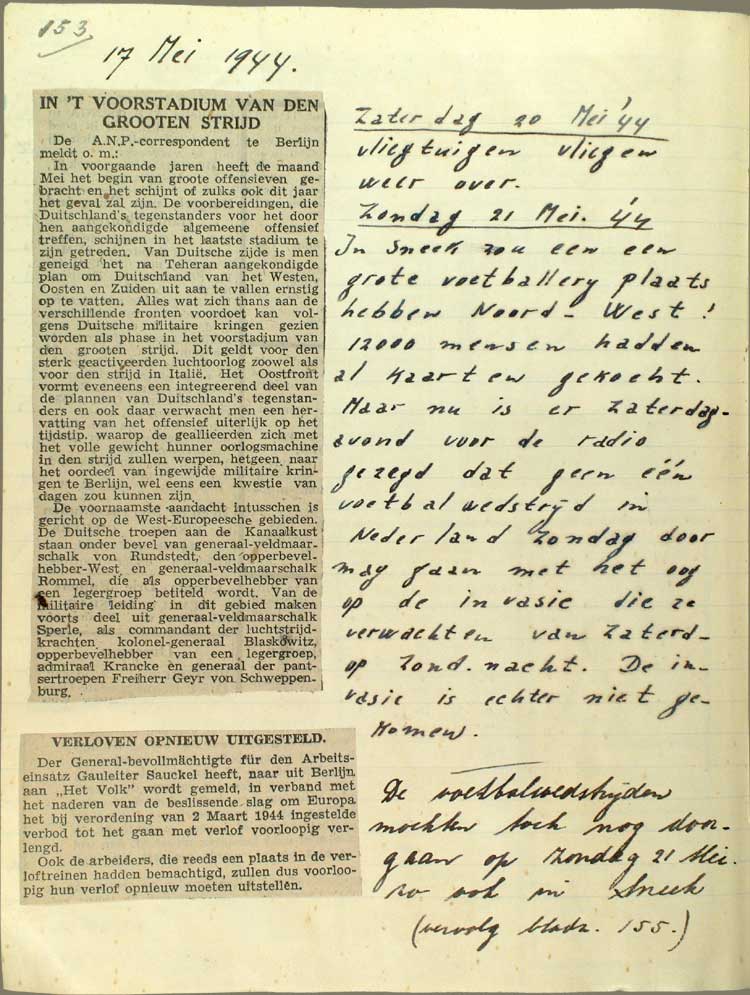 153
17 Mei 1944.
IN 'T VOORSTADIUM VAN DEN
GROOTEN STRIJD
De A.N.P.-correspondent te Berlijn
meldt o. m.:
In voorgaande jaren heeft de maand
Mei het begin van groote offensieven ge-
bracht en het schijnt of zulks ook dit jaar
het geval zal zijn. De voorbereidingen, die
Duitschland's tegenstanders voor het door
hen aangekondigde algemeene offensief
treffen, schijnen in het laatste stadium te
zijn getreden. Van Duitsche zijde is men
geneigd het na Teheran aangekondigde
plan om Duitschland van het Westen,
Oosten en Zuiden uit aan te vallen ernstig
op te vatten. Alles wat zich thans aan de
verschillende fronten voordoet kan vol-
gens Duitsche militaire kringen gezien
worden als phase in het voorstadium van
den grooten strijd. Dit geldt voor den
sterk geactiveerden luchtoorlog zoowel als
voor den strijd in Italië. Het Oostfront
vormt eveneens een integreerend deel van
de plannen van Duitschland's tegenstan-
ders en ook daar verwacht men een her-
vatting van het offensief uiterlijk op het
tijdstip. waarop de geallieerden zich met
het volle gewicht hunner oorlogsmachine
in den strijd zullen werpen, hetgeen naar
het oordeel van ingewijde militaire krin-
gen te Berlijn, wel eens een kwestie van
dagen zou kunnen zijn
De voornaamste aandacht intusschen is
gericht op de West-Europeesche gebieden.
De Duitsche troepen aan de Kanaalkust
staan onder bevel van generaal-veldmaar-
schalk von Rundstedt, den opperbevel-
hebber-West en generaal-veldmaarschalk
Rommel, die als opperbevelhebber van
een legergroep betiteld wordt. Van de
militaire leiding in dit gebied maken
voorts deel uit generaal-veldmaarschalk
Sperle, als commandant der luchtstrijd-
krachten, kolonel-generaal Blaskowitz,
opperbevelhebber van een legergroep,
admiraal Krancke en generaal der pant-
sertroepen Freiherr Geyr von Schweppen-
burg.
VERLOVEN OPNIEUW UITGESTELD.
Der General-bevollmächtigte für den Arbeits-
einsatz Gauleiter Sauckel heeft, naar uit Berlijn
aan „Het Volk" wordt gemeld, in verband met
het naderen van de beslissende slag om Europa
het bij verordening van 2 Maart 1944 ingestelde
verbod tot het gaan met verlof voorloopig ver-
lengd.
Ook de arbeiders, die reeds een plaats in de ver-
loftreinen hadden bemachtigd, zullen dus voorloo-
pig hun verlof opnieuw moeten uitstellen.
Zaterdag 20 Mei '44
vliegtuigen vliegen
weer over.
Zondag 21 Mei. '44
In Sneek zou een een
grote voetballery plaats
hebben Noord-West!
12000 mensen hadden
al kaarten gekocht.
Maar nu is er Zaterdag-
avond voor de radio
gezegd dat geen één
voetbalwedstryd in
Nederland Zondag door
mag gaan met het oog
op de invasie die ze
verwachten van Zaterd-
op Zond. nacht. De in-
vasie is echter niet ge-
komen.
De voetbalwedstryden
mochten toch nog door-
gaan op Zondag 21 Mei.
zo ook in Sneek
(vervolg bladz. 155.)